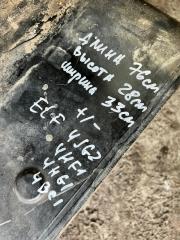 Длина 76см
Высота 28см
ширина 33см
+/-
ECF 4JG2
4HF1
4HG1
4BC1